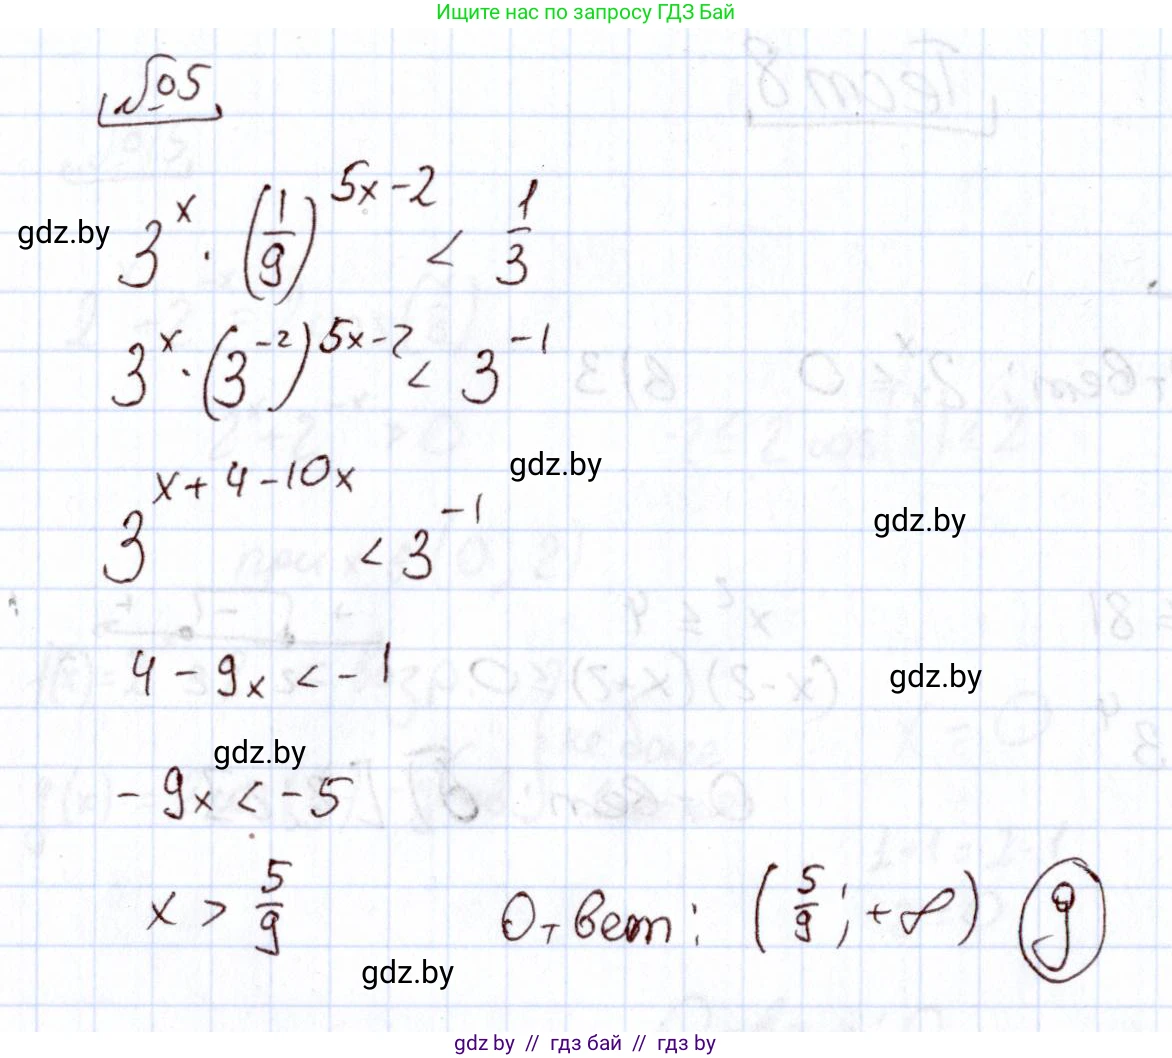 Ищите нас по запросу ГДЗ Бай
№5
3^x · (1/9)^(5x-2) < 1/3
gdz.by
3^x · (3^-2)^(5x-2) < 3^-1
gdz.by
3^(x+4-10x) < 3^-1
gdz.by
4 - 9x < -1
gdz.by
gdz.by
-9x < -5
x > 5/9 Ответ: (5/9; +∞) g
gdz.by
gdz.by // гдз бай // гдз by